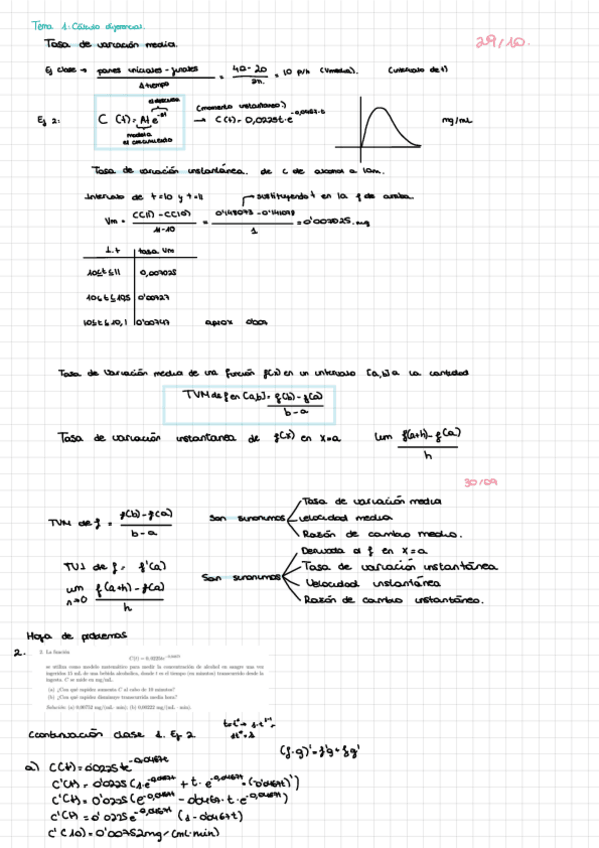 Tema 1: Cálculo diferencial.
Tasa de variación media.
29/10.
Ej clase → panes iniciales - finales / Δ tiempo = 40-20 / 2h. = 10 p/h (Vmedia). (intervalo de t)
Ej 2: C(t) = At e^-βt (momento instantáneo) → C(t) = 0,0225t·e^-0,0467·t mg/mL
modela el crecimiento
Tasa de variación instantánea. de C de alcohol a 10m.
Intervalo de t=10 y t=11 sustituyendo t en la f de arriba.
Vm = C(11) - C(10) / 11-10 = / 1 = 0'007025. mg
I. t tasa Vm
10≤t≤11 0,007025
10≤t≤10,5 0'00727
10≤t≤10,1 0'00747 aprox
Tasa de variación media de una función f(x) en un intervalo [a,b] a la cantidad
TVM de f en [a,b] = f(b) - f(a) / b-a
Tasa de variación instantanea de f(x) en x=a lim f(a+h) - f(a) / h
30/09
TVM de f = f(b) - f(a) / b-a Son sinonimos
Tasa de variación media
Velocidad media
Razón de cambio medio.
TVI de f = f'(a)
lim h→0 f(a+h) - f(a) / h Son sinonimos
Derivada d f en x=a
Tasa de variación instantánea
Velocidad instantánea
Razón de cambio instantáneo.
Hoja de problemas
2.
2. La función
C(t) = 0.0225te^-0.0467t
se utiliza como modelo matemático para medir la concentración de alcohol en sangre una vez
ingeridos 15 mL de una bebida alcohólica, donde t es el tiempo (en minutos) transcurrido desde la
ingesta. C se mide en mg/mL.
(a) ¿Con qué rapidez aumenta C al cabo de 10 minutos?
(b) ¿Con qué rapidez disminuye transcurrida media hora?
Solución: (a) 0.00752 mg/(mL · min); (b) 0.00222 mg/(mL · min).
Continuación clase 1. Ej 2.
(f·g)' = f'g + fg'
a) C(t) = 0'0225 t e^-0,0467t
C'(t) = 0'0225 (1·e^-0,0467t + t·e^-0,0467t·(-0'0467t)')
C'(t) = 0'0225 (e^-0,0467t - 0,0467·t·e^-0,0467t)
C'(t) = 0'0225 e^-0,0467t (1 - 0,0467t)
C'(10) = 0'00752 mg/(ml·min)